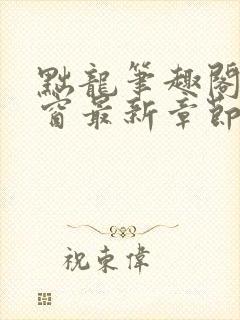 點龍筆趣閣
窗最新章節
祝東偉